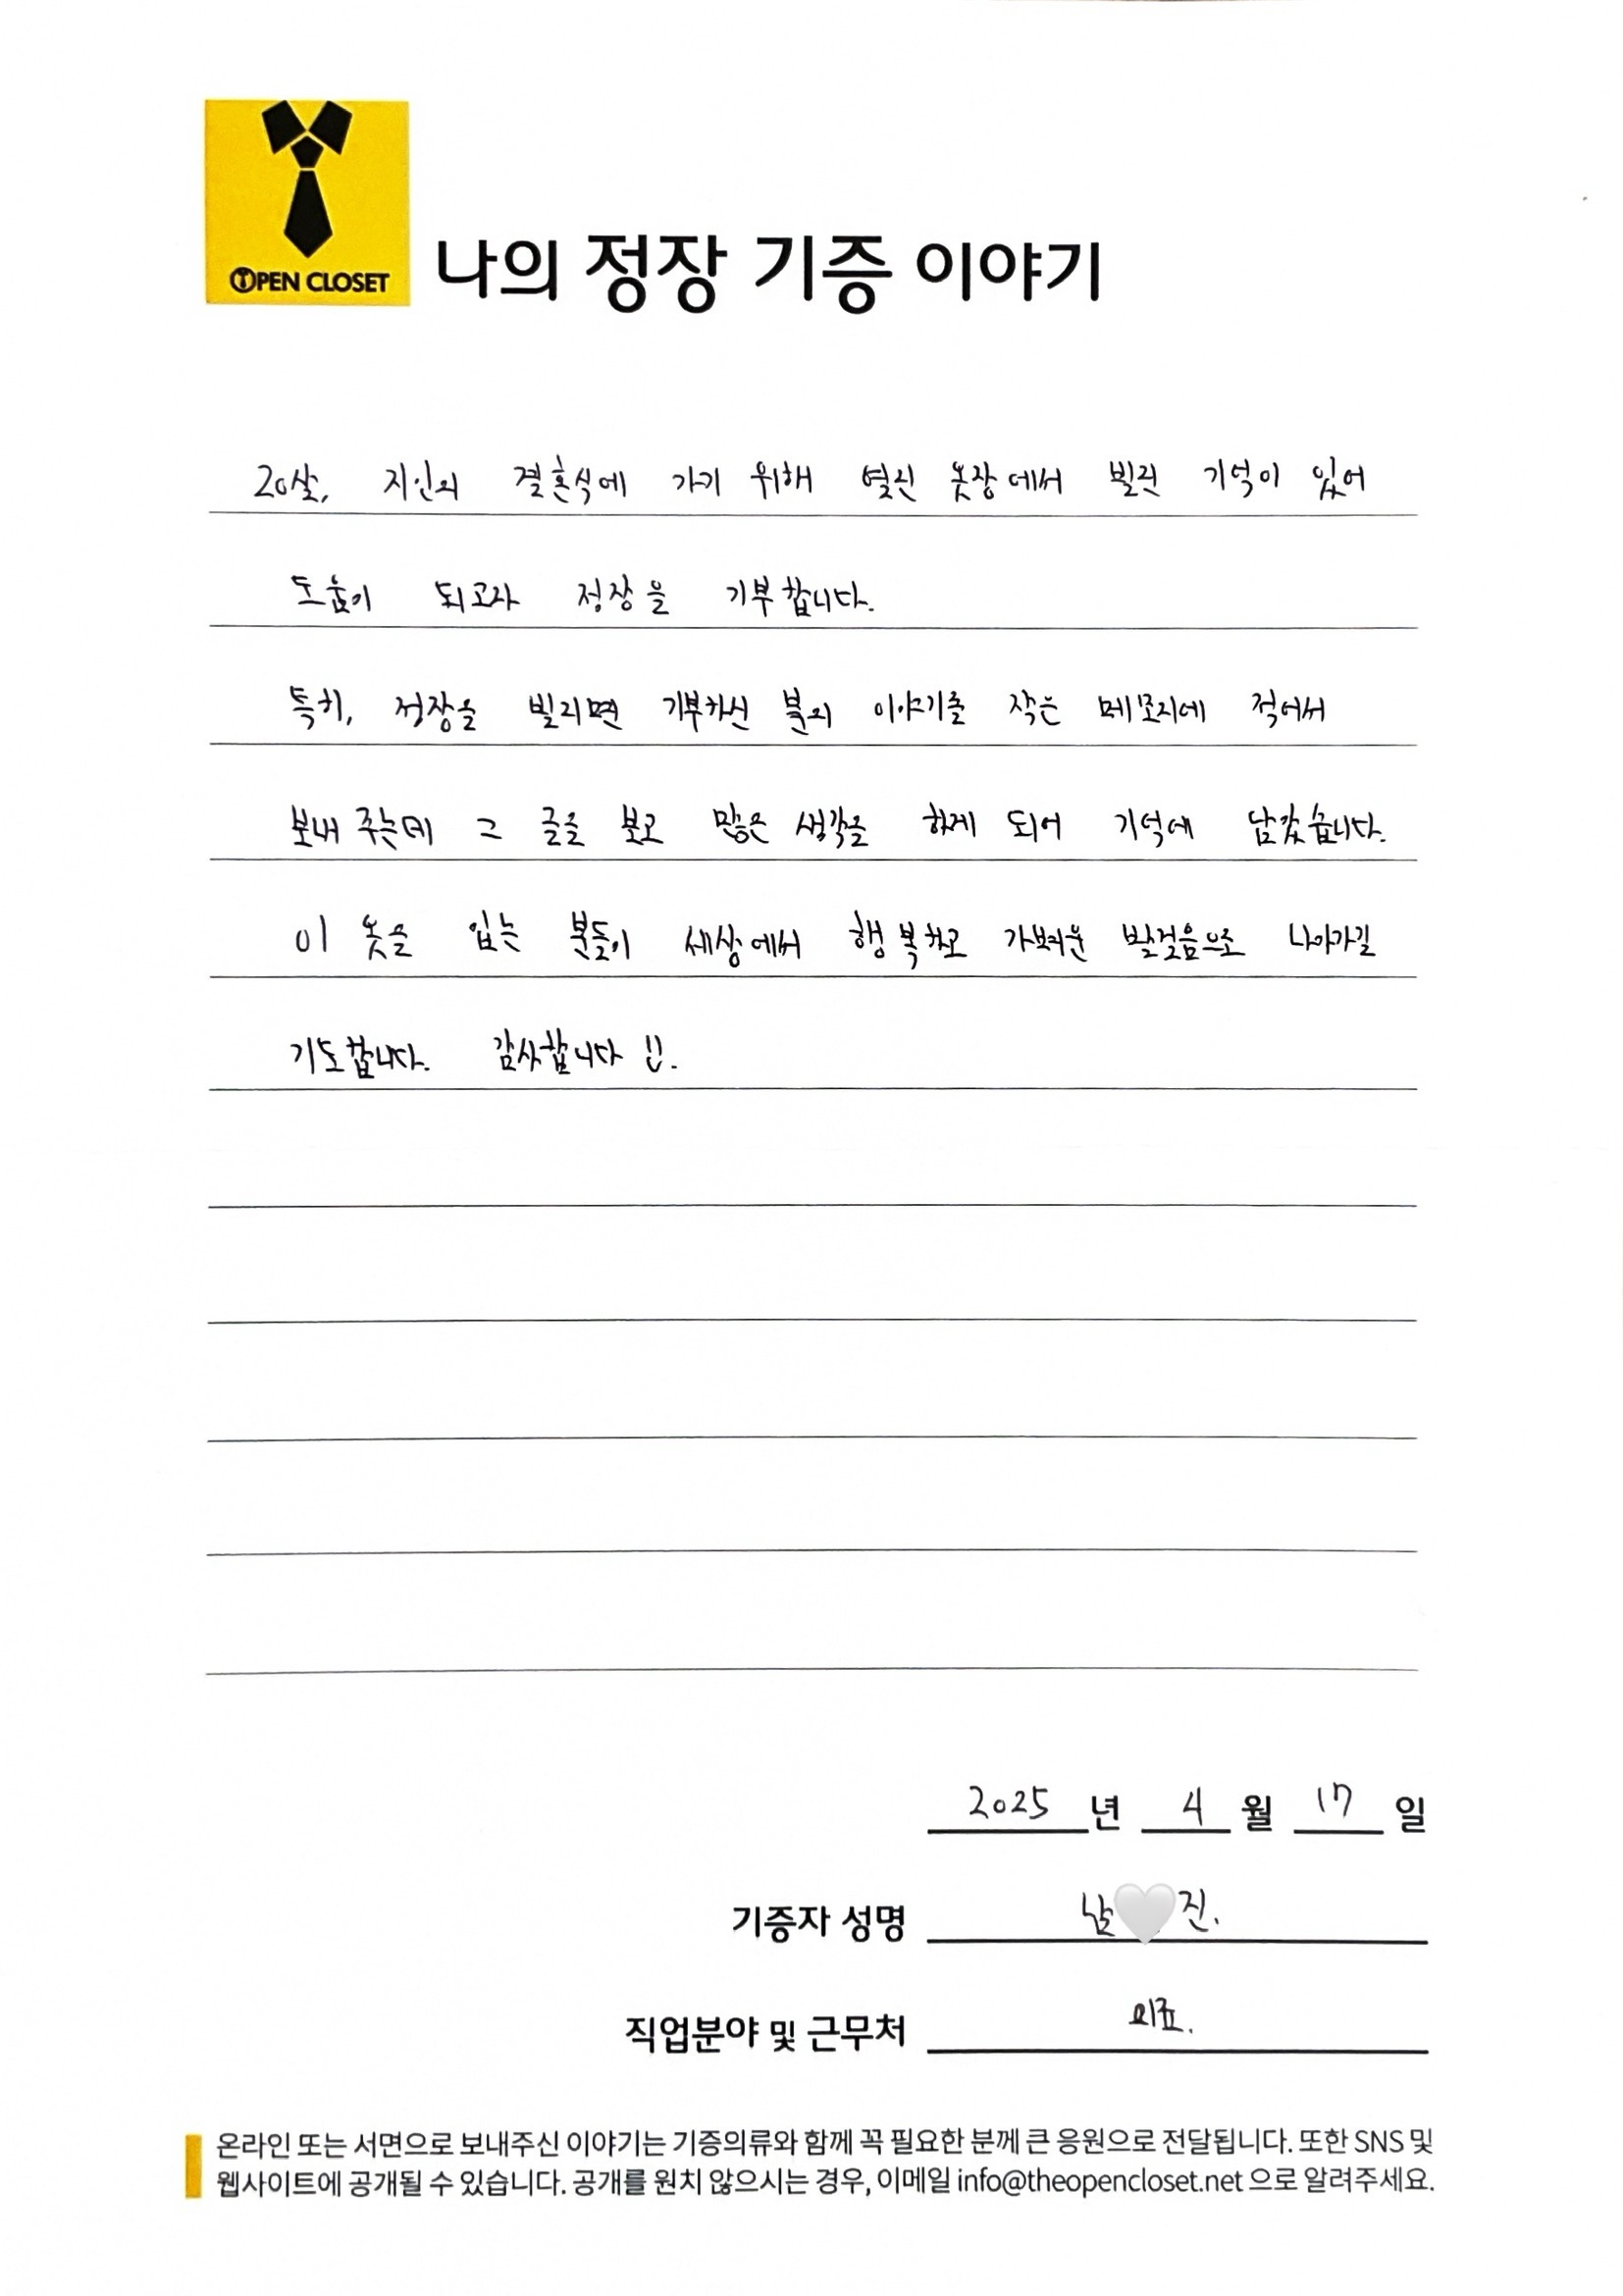 OPEN CLOSET
나의 정장 기증 이야기
20살, 지인의 결혼식에 가기 위해 열린 옷장에서 빌린 기억이 있어
도움이 되고자 정장을 기부합니다.
특히, 정장을 빌리면 기부하신 분의 이야기를 작은 메모지에 적어서
보내 주는데 그 글을 보고 많은 생각을 하게 되어 기억에 남았습니다.
이 옷을 입는 분들이 세상에서 행복하고 가벼운 발걸음으로 나아가길
기도합니다. 감사합니다 !!.
2025 년 4 월 17 일
기증자 성명 남 진.
직업분야 및 근무처
온라인 또는 서면으로 보내주신 이야기는 기증의류와 함께 꼭 필요한 분께 큰 응원으로 전달됩니다. 또한 SNS 및
웹사이트에 공개될 수 있습니다. 공개를 원치 않으시는 경우, 이메일 info@theopencloset.net 으로 알려주세요.